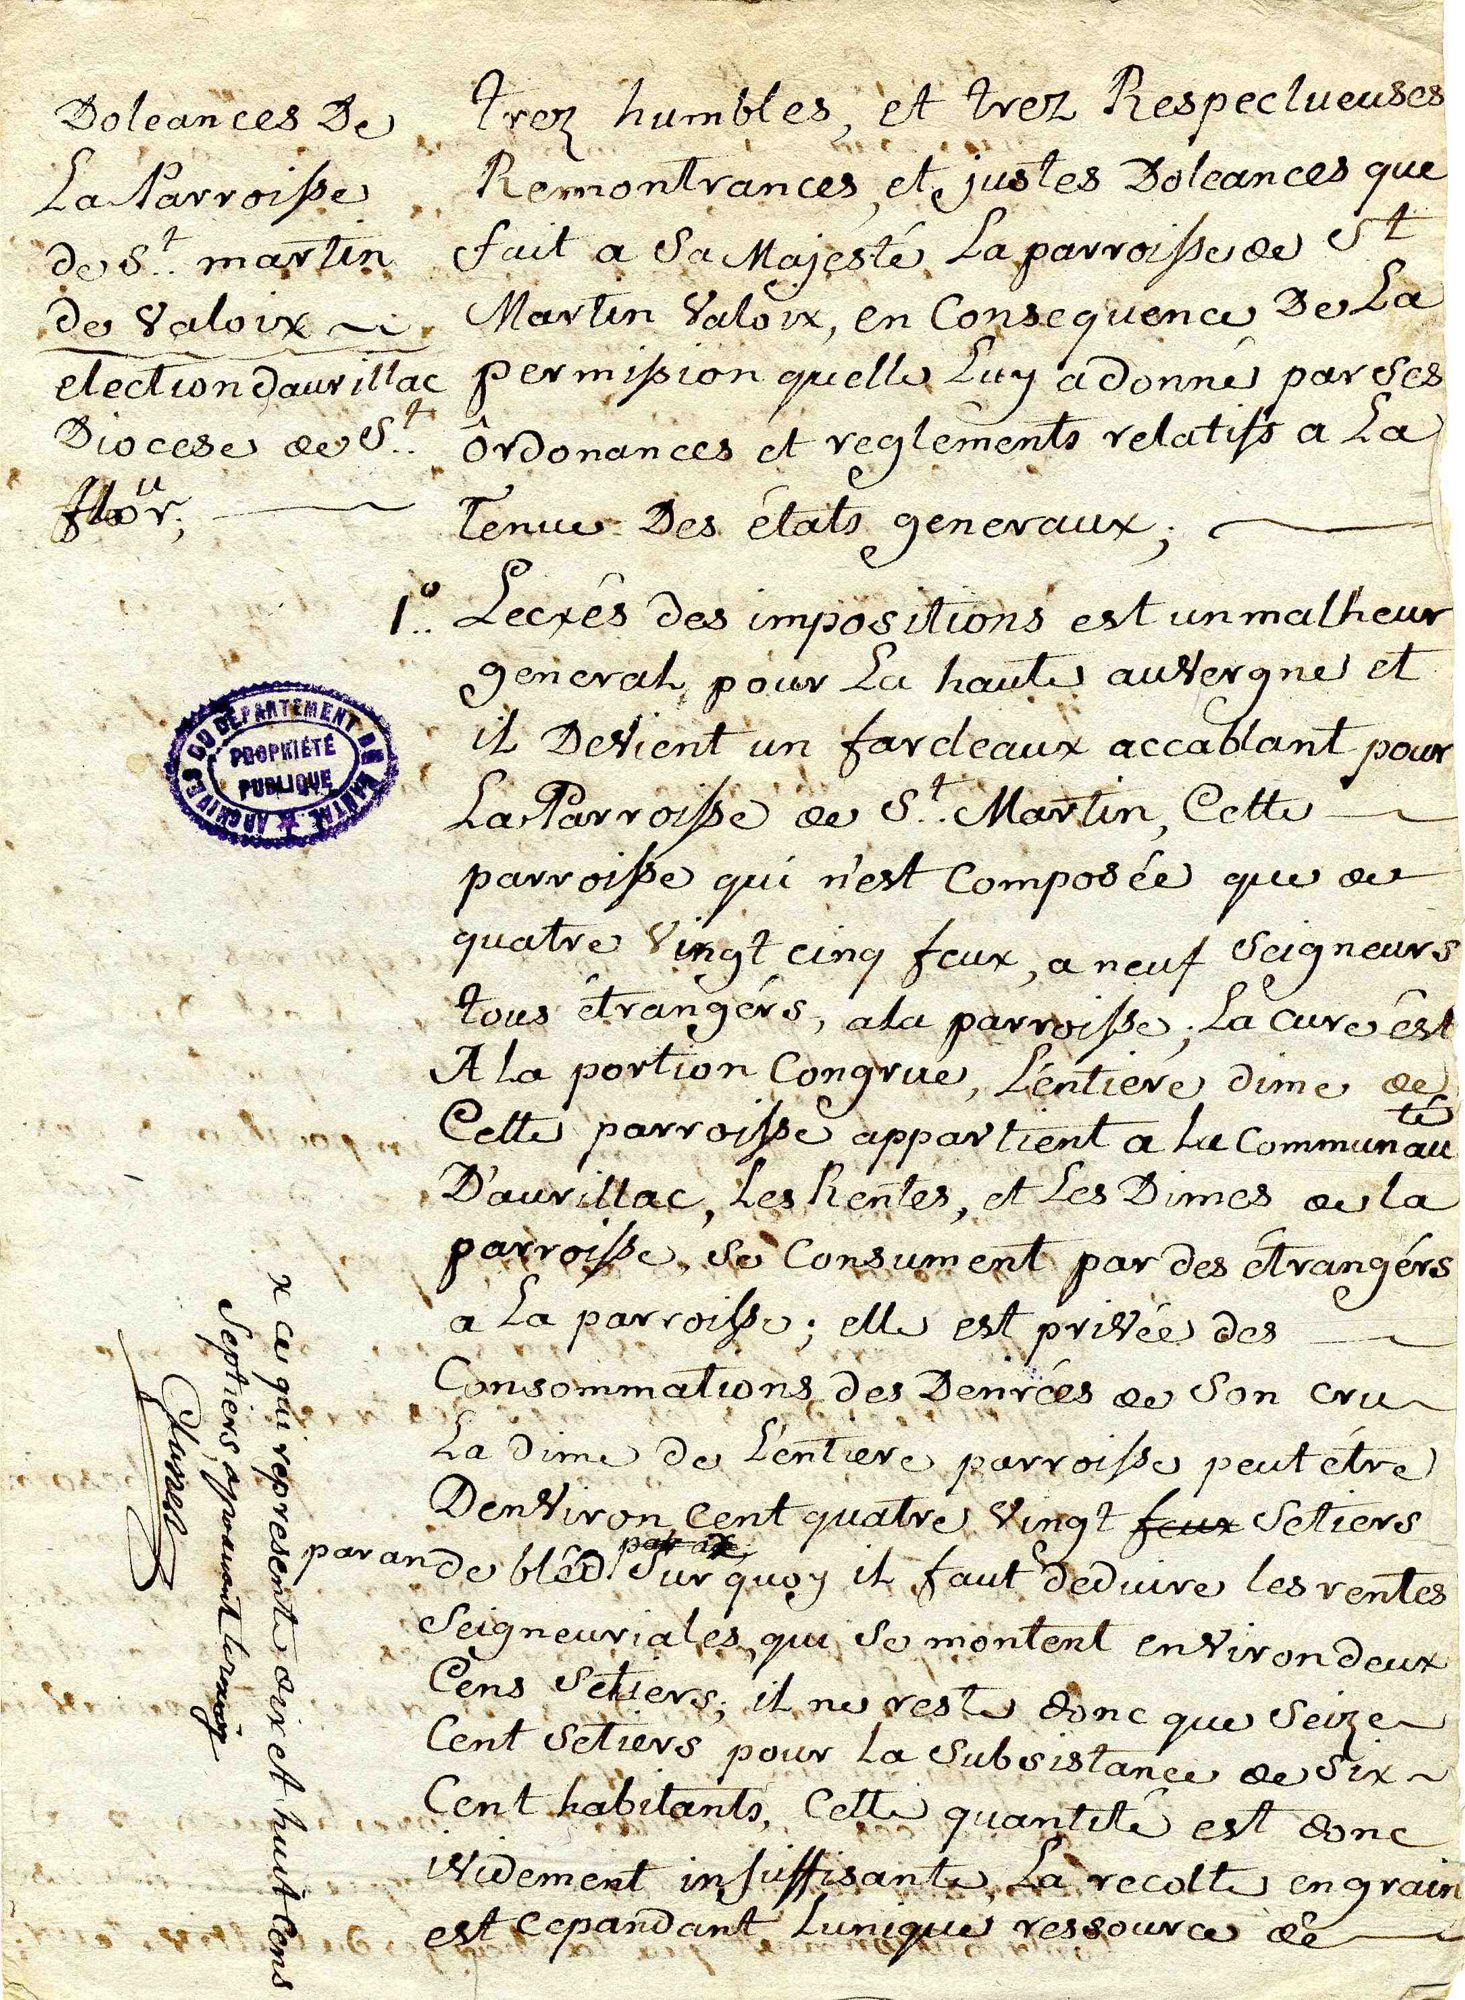 Doleances De
La Parroisse
de St. martin
de Valoix
election daurillac
Diocese de St.
flour;
trez humbles, et trez Respectueuses
Remontrances, et justes Doleances que
fait a Sa Majésté La parroisse de St
Martin Valoix, en Consequence De La
permission quelle Luy a donné par Ses
Ordonances et reglements relatifs a La
Tenue Des états generaux;
1o. Lecxés des impositions est un malheur
general, pour La haute auvergne et
il Devient un fardeaux accablant pour
La Parroisse de St. Martin, Cette
parroisse qui n'est Composée que de
quatre Vingt cinq feux, a neuf Seigneurs
tous étrangérs, a la parroisse; La cure ést
A la portion Congrue, L'entiere dime de
Cette parroisse appartient a La Communauté
D'aurillac, Les Rentes, et Les Dimes de la
parroisse, se Consument par des étrangérs
a La parroisse; elle est privée des
Consommations des Denrées de Son cru
La dime de L'entiere parroisse peut étre
Denviron Cent quatre Vingt feux Setiers
par an de bléd par an Sur quoy il faut deduire les rentes
Seigneuriales, qui se montent environ deux
Cens Setiers; il ne reste donc que Seize
Cent Setiers pour la Subsistance de Six
Cent habitants, Cette quantité est donc
ividement insuffisante, La recolte en grain
est cepandant Lunique ressource de
x ce qui represente dix et huit Cens
Septiers, aprouvant le renvoy
ARCHIVES DU DÉPARTEMENT DU CANTAL
PROPRIÉTÉ
PUBLIQUE